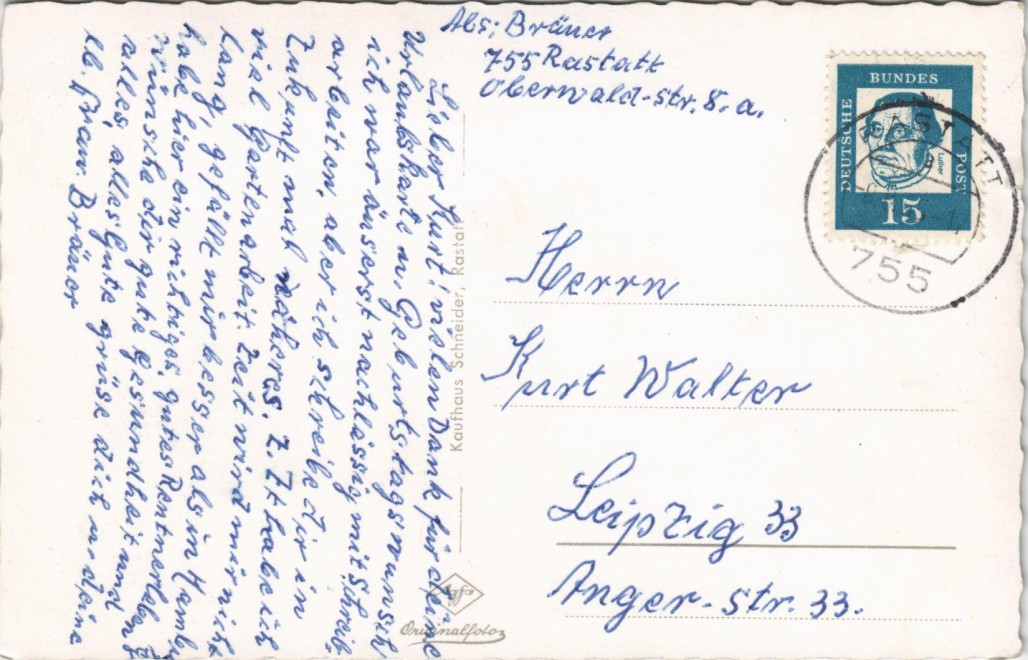 Abs; Bräuer
755 Rastatt
Oberwald-str. 8. a.
BUNDES
DEUTSCHE
POST
Luther
15
RASTATT
755
Herrn
Kurt Walter
Leipzig 33
Anger-str. 33.
Lieber Kurt! vielen Dank für deine
Urlaubskarte u. Geburtstagswunsch
ich war äuserst nachlässig mit Schreib
arbeiten, aber ich schreibe dir in
Zukunft mal mehr. Z. Zt habe ich
viel Gartenarbeit. Zeit wird mir nicht
lang, gefällt mir besser als in Hambu
habe hier ein richtiges, gutes Rentnerleben
wünsche dir gute Gesundheit und
alles alles Gute grüse dich u. deine
lb. Frau. Bräuer
Kaufhaus Schneider, Rastatt
Agfa
Originalfoto